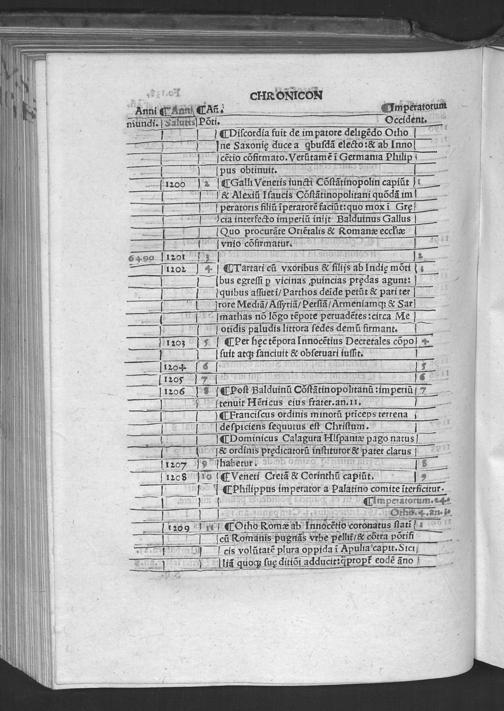 CHRONICON
Anni ¶Anni ¶Añ. ¶Imperatorum
mundi. Salutis Põti. Occident.
¶Discordia fuit de impatore deligẽdo Otho
ne Saxonię duce a qbusdã electo: & ab Inno
cẽtio cõfirmato. Verũtamẽ i Germania Philip
pus obtinuit.
1200 2 ¶Galli Venetis iuncti Cõstãtinopolin capiũt 1
& Alexiũ Isaucis Cõstãtinopolitani quõdã im
peratoris filiũ iperatorẽ faciũt: quo mox i Gre
cia interfecto imperiũ inijt Balduinus Gallus
Quo procurãte Oriẽtalis & Romanæ ecclĩæ
vnio cõfirmatur.
6400 1201 3 2
1202 4 ¶Tartari cũ vxoribus & filijs ab Indię mõti 3
bus egressi p vicinas puincias prędas agunt:
quibus assueti/Parthos deĩde petũt & pari ter
rore Mediã/Assyriã/Persiã/Armeniamq; & Sar
mathas nõ lõgo tẽpore peruadẽtes: circa Me
otidis paludis littora sedes demũ firmant.
1203 5 ¶Per hęc tẽpora Innocẽtius Decretales cõpo 4
suit atq; sanciuit & obseruari iussit.
1204 6 5
1205 7 6
1206 8 ¶Post Balduinũ Cõstãtinopolitanũ: imperiũ 7
tenuit Hẽricus eius frater.an.11.
¶Franciscus ordinis minorũ priceps terrena
despiciens sequutus est Christum.
¶Dominicus Calagura Hispaniæ pago natus
& ordinis prędicatorũ institutor & pater clarus
1207 9 habetur. 8
1208 10 ¶Veneti Cretã & Corinthũ capiũt. 9
¶Philippus imperator a Palatino comite ĩterficitur.
¶Imperatorum.24.
Otho.4.an.
1209 11 ¶Otho Romæ ab Innocẽtio coronatus stati 1
cũ Romanis pugnãs vrbe pellit̃: & cõtra põtifi
cis volũtatẽ plura oppida ĩ Apulia capit. Sici
liã quoq; suę ditiõi adducit: qpropt̃ eodẽ ãno